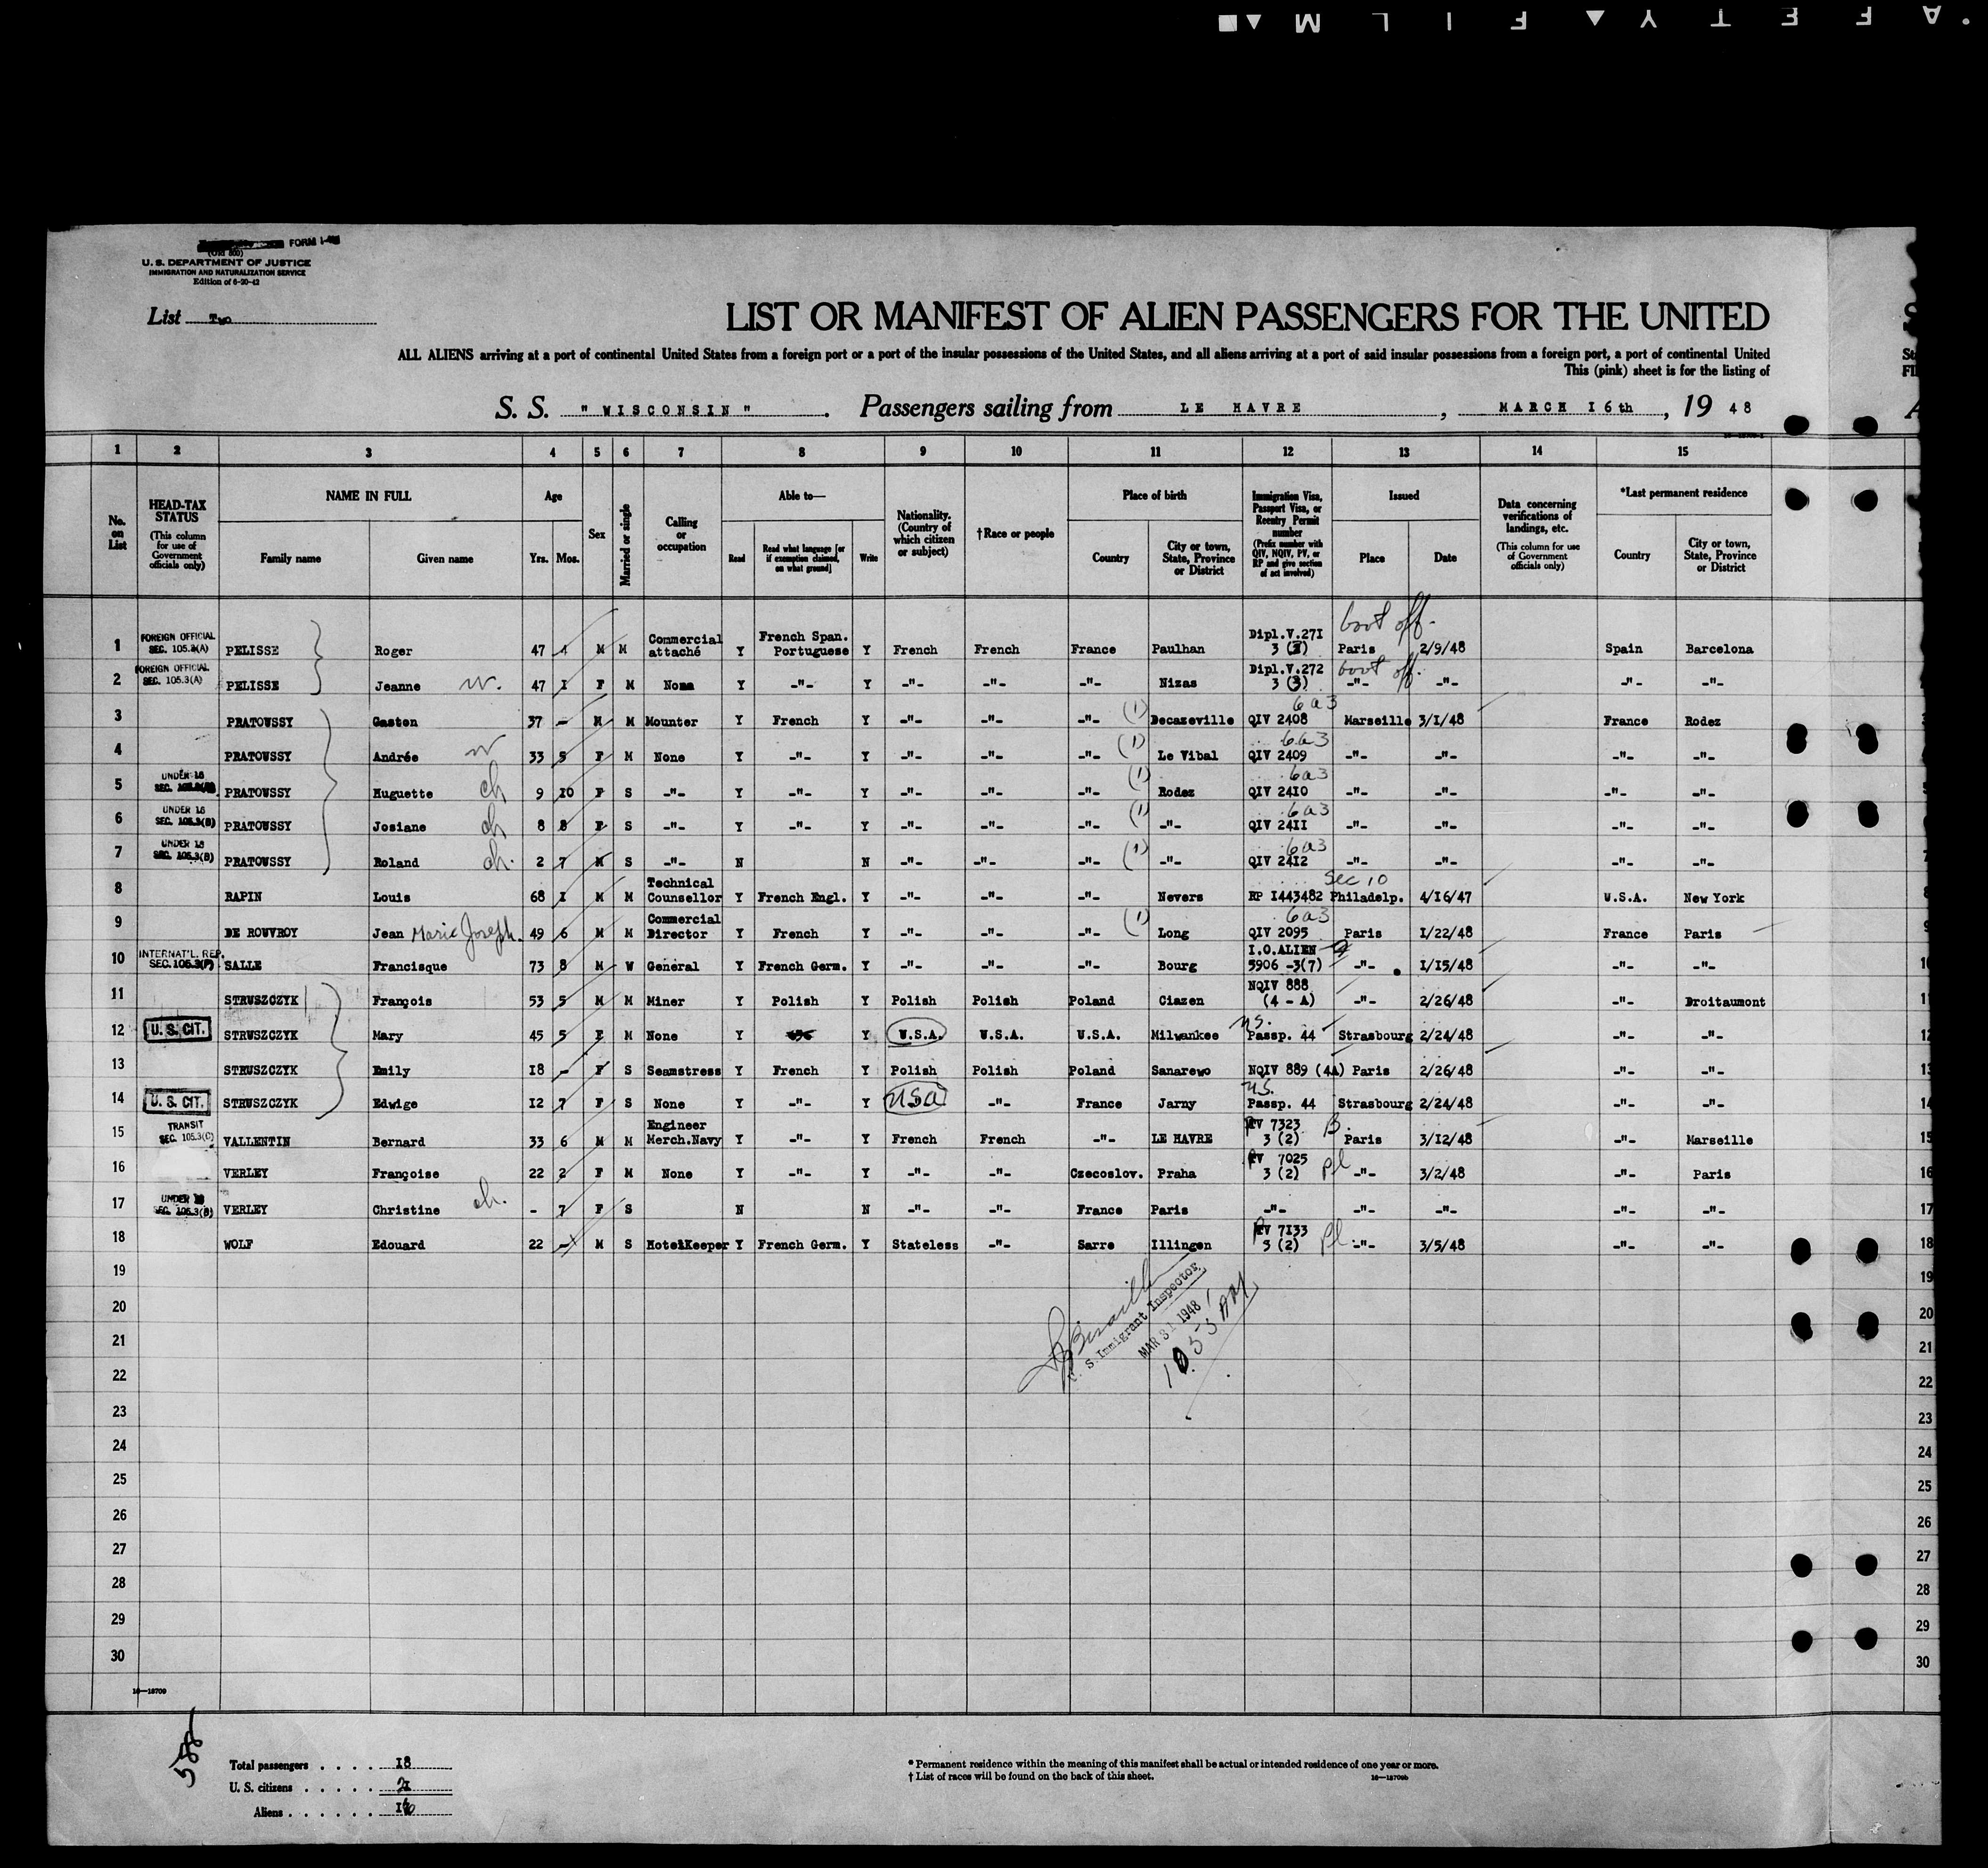 SAFETY FILM
FORM I-
(Old 500)
U. S. DEPARTMENT OF JUSTICE
IMMIGRATION AND NATURALIZATION SERVICE
Edition of 6-20-42
List Two
LIST OR MANIFEST OF ALIEN PASSENGERS FOR THE UNITED
ALL ALIENS arriving at a port of continental United States from a foreign port or a port of the insular possessions of the United States, and all aliens arriving at a port of said insular possessions from a foreign port, a port of continental United
This (pink) sheet is for the listing of
S. S. " WISCONSIN " . Passengers sailing from LE HAVRE , MARCH I6th , 19 48
1 2 3 4 5 6 7 8 9 10 11 12 13 14 15
No. on List
HEAD-TAX STATUS (This column for use of Government officials only)
NAME IN FULL Family name Given name
Age Yrs. Mos.
Sex
Married or single
Calling or occupation
Able to— Read Read what language [or if exemption claimed, on what ground] Write
Nationality. (Country of which citizen or subject)
† Race or people
Place of birth Country City or town, State, Province or District
Immigration Visa, Passport Visa, or Reentry Permit number (Prefix number with QIV, NQIV, PV, or RP and give section of act involved)
Issued Place Date
Data concerning verifications of landings, etc. (This column for use of Government officials only)
*Last permanent residence Country City or town, State, Province or District
1 FOREIGN OFFICIAL SEC. 105.3(A) PELISSE Roger 47 4 M M Commercial attaché Y French Span. Portuguese Y French French France Paulhan Dipl.V.27I 3 Paris 2/9/48 Spain Barcelona
2 FOREIGN OFFICIAL SEC. 105.3(A) PELISSE Jeanne w. 47 I F M None Y -"- Y -"- -"- -"- Nizas Dipl.V.272 3 (3) -"- -"- -"- -"-
3 PRATOUSSY Gaston 37 - M M Mounter Y French Y -"- -"- -"- (1) Decazeville QIV 2408 6a3 Marseille 3/I/48 France Rodez
4 PRATOUSSY Andrée w 33 5 F M None Y -"- Y -"- -"- -"- (1) Le Vibal QIV 2409 6a3 -"- -"- -"- -"-
5 UNDER 16 PRATOUSSY Huguette ch 9 IO F S -"- Y -"- Y -"- -"- -"- (1) Rodez QIV 24IO 6a3 -"- -"- -"- -"-
6 UNDER 16 SEC. 105.3(B) PRATOUSSY Josiane ch 8 8 F S -"- Y -"- Y -"- -"- -"- (1) -"- QIV 24II 6a3 -"- -"- -"- -"-
7 UNDER 16 SEC. 105.3(B) PRATOUSSY Roland ch. 2 7 M S -"- N N -"- -"- -"- (1) -"- QIV 24I2 6a3 -"- -"- -"- -"-
8 RAPIN Louis 68 I M M Technical Counsellor Y French Engl. Y -"- -"- -"- Nevers RP I443482 Sec 10 Philadelp. 4/I6/47 U.S.A. New York
9 DE ROUVROY Jean Marie Joseph. 49 6 M M Commercial Director Y French Y -"- -"- -"- (1) Long QIV 2095 6a3 Paris I/22/48 France Paris
10 INTERNAT'L. REP. SEC. 105.3(F) SALLE Francisque 73 8 M W General Y French Germ. Y -"- -"- -"- Bourg I.O.ALIEN 5906 -3(7) -"- I/I5/48 -"- -"-
11 STRUSZCZYK François 53 5 M M Miner Y Polish Y Polish Polish Poland Ciazen NQIV 888 (4 - A) -"- 2/26/48 -"- Droitaumont
12 U. S. CIT. STRUSZCZYK Mary 45 5 F M None Y Y U.S.A. U.S.A. U.S.A. Milwankee U.S. Passp. 44 Strasbourg 2/24/48 -"- -"-
13 STRUSZCZYK Emily I8 - F S Seamstress Y French Y Polish Polish Poland Sanarewo NQIV 889 (4A) Paris 2/26/48 -"- -"-
14 U. S. CIT. STRUSZCZYK Edwige I2 7 F S None Y -"- Y USA -"- France Jarny U.S. Passp. 44 Strasbourg 2/24/48 -"- -"-
15 TRANSIT SEC. 105.3(C) VALLENTIN Bernard 33 6 M M Engineer Merch.Navy Y -"- Y French French -"- LE HAVRE PV 7323 3 (2) B. Paris 3/I2/48 -"- Marseille
16 VERLEY Françoise 22 2 F M None Y -"- Y -"- -"- Czecoslov. Praha PV 7025 3 (2) Pl -"- 3/2/48 -"- Paris
17 UNDER 16 SEC. 105.3(B) VERLEY Christine ch. - 7 F S N N -"- -"- France Paris -"- -"- -"- -"- -"-
18 WOLF Edouard 22 - M S HotelKeeper Y French Germ. Y Stateless -"- Sarre Illingen PV 7I33 3 (2) Pl -"- 3/5/48 -"- -"-
19
20
21
22
23
24
25
26
27
28
29
30
S. Immigrant Inspector
MAR 31 1948
16—18709
588
Total passengers . . . . I8
U. S. citizens . . . . . 2
Aliens . . . . . . I6
* Permanent residence within the meaning of this manifest shall be actual or intended residence of one year or more.
† List of races will be found on the back of this sheet.
16—18709b